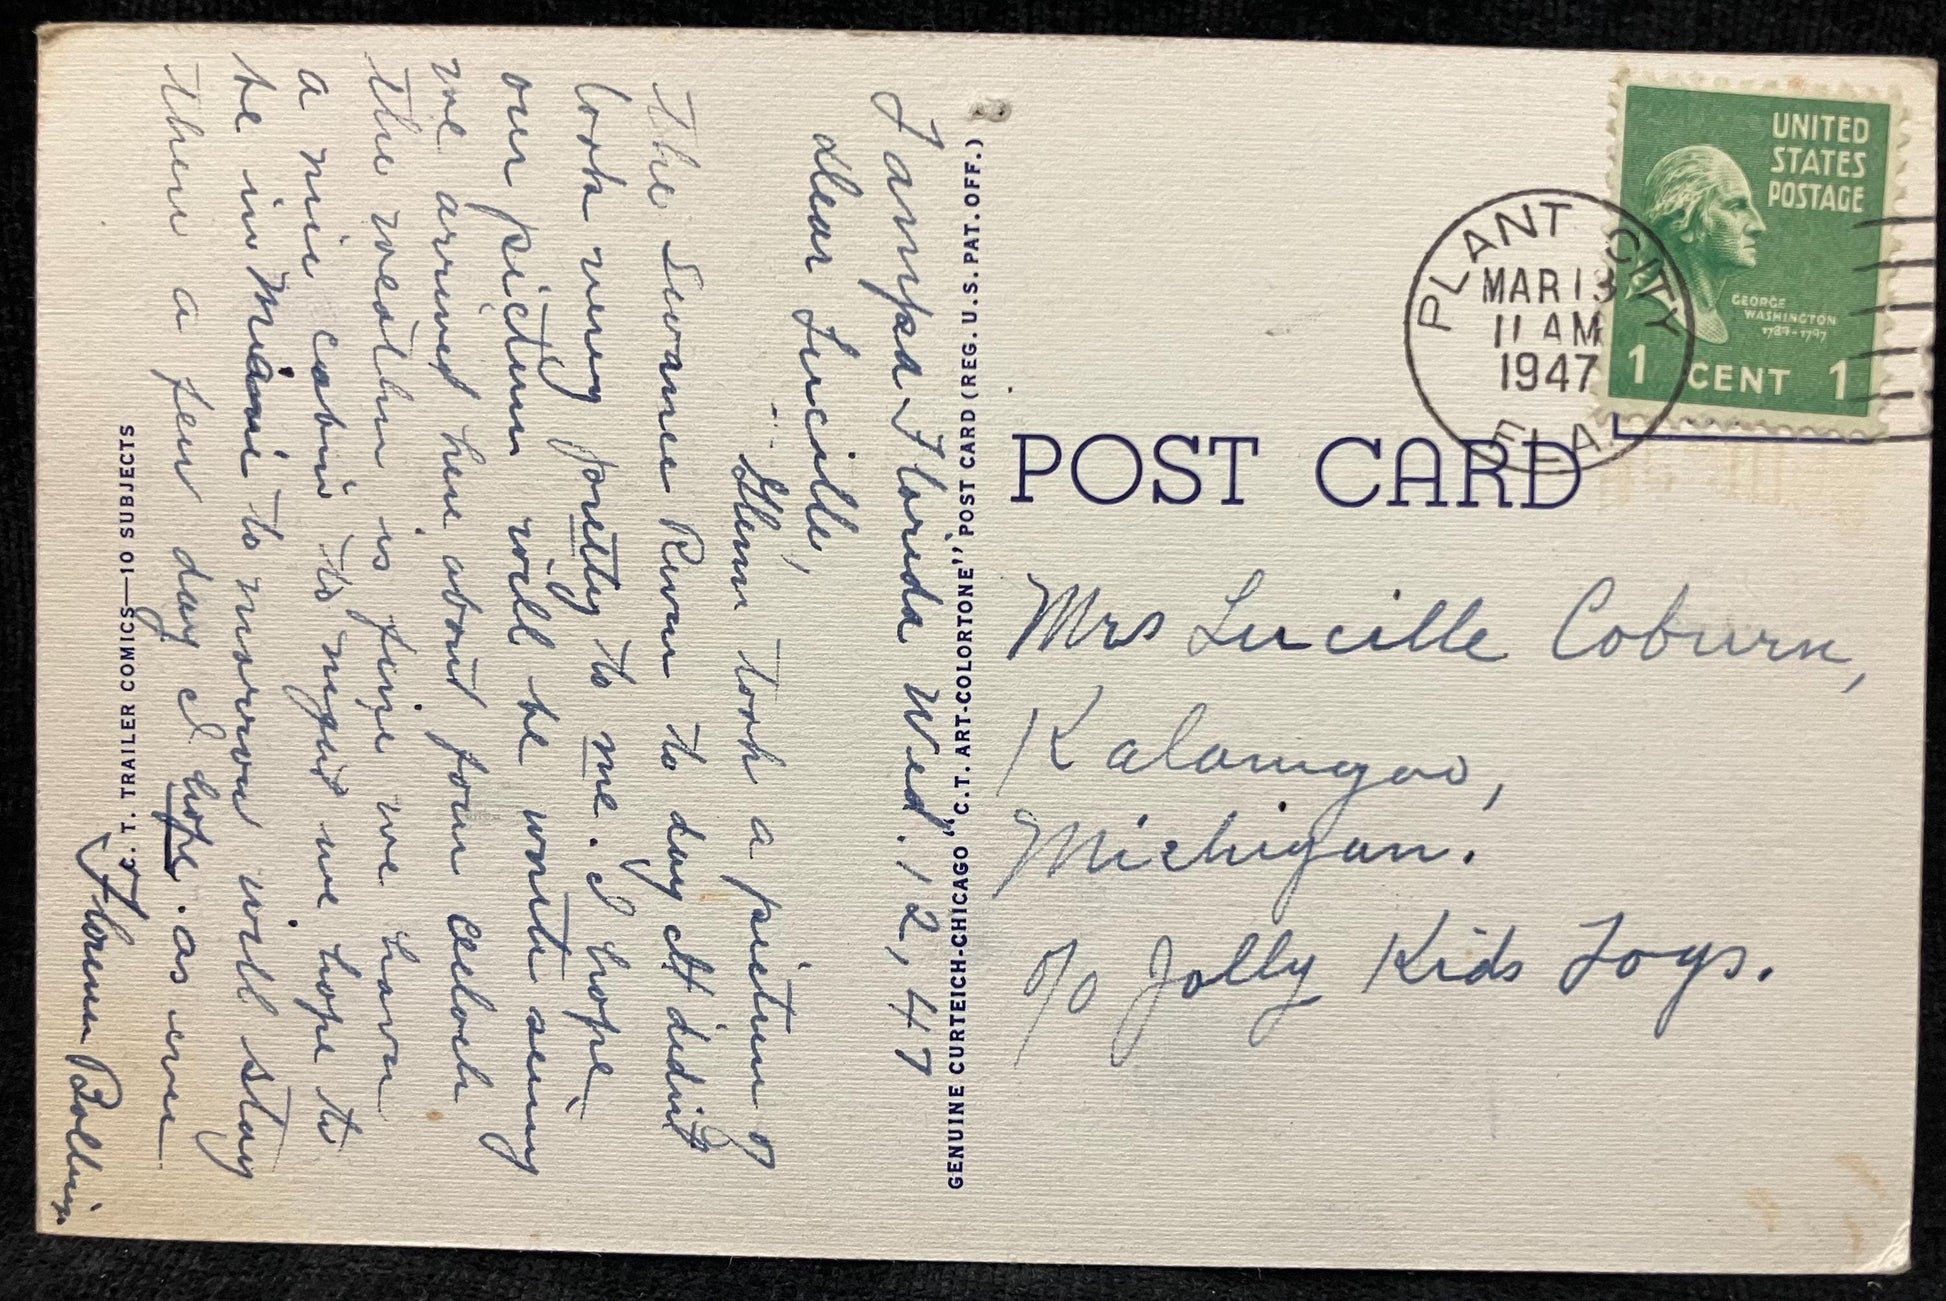 Tampa Florida Wed. 12, 47
Dear Lucille,
Glenn took a picture of
the Swanee River to day It didn't
look very pretty to me. I hope
our picture will be worth seeing
we arrived here about four Oclock
the weather is fine we have
a nice cabin to night we hope to
be in Miami to morrow will stay
there a few day I hope. as ever
Florence Bollin
C. T. TRAILER COMICS—10 SUBJECTS
GENUINE CURTEICH-CHICAGO "C.T. ART-COLORTONE" POST CARD (REG. U.S. PAT. OFF.)
UNITED
STATES
POSTAGE
GEORGE
WASHINGTON
1789-1797
1 CENT 1
PLANT CITY
MAR 13
11 AM
1947
FLA.
POST CARD
Mrs Lucille Coburn,
Kalamgoo,
Michigan.
c/o Jolly Kids Toys.